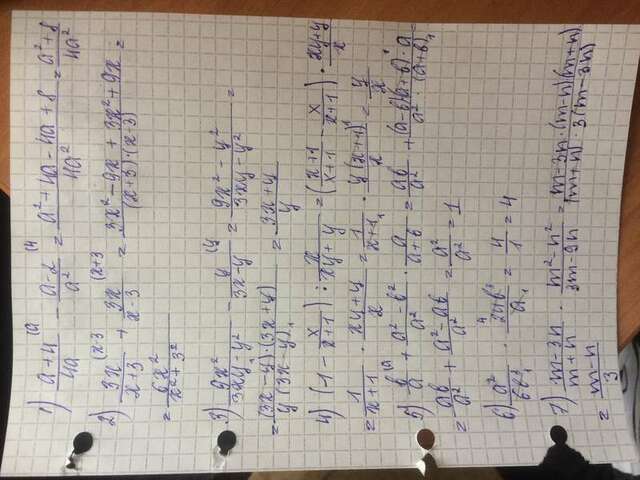 1) (a+4)/4a (a - (a-2)/a² (4 = (a²+4a-4a+8)/4a² = (a²+8)/4a²
2) 3x/(x+3) (x-3 + 3x/(x-3) (x+3 = (3x²-9x+3x²+9x)/((x+3)·(x-3)) =
= 6x²/(x²+3²)
3) 9x²/(3xy-y²) - y/(3x-y) (y = (9x²-y²)/(3xy-y²) =
= ((3x-y)·(3x+y))/(y(3x-y)) = (3x+y)/y
4) (1 - x/(x+1)) : x/(xy+y) = ((x+1)/(x+1) - x/(x+1)) · (xy+y)/x
= 1/(x+1) · (xy+y)/x = 1/(x+1) · y(x+1)/x = y/x
5) b/a (a + (a²-b²)/a² · a/(a+b) = ab/a² + ((a-b)(a+b)·a)/(a²·(a+b)) =
= ab/a² + (a²-ab)/a² = a²/a² = 1
6) a²/6b³ · /a = 4/1 = 4
7) (m-3n)/(m+n) · (m²-n²)/(3m-9n) = (m-3n·(m-n)(m+n))/((m+n)·3(m-3n))
= (m-n)/3